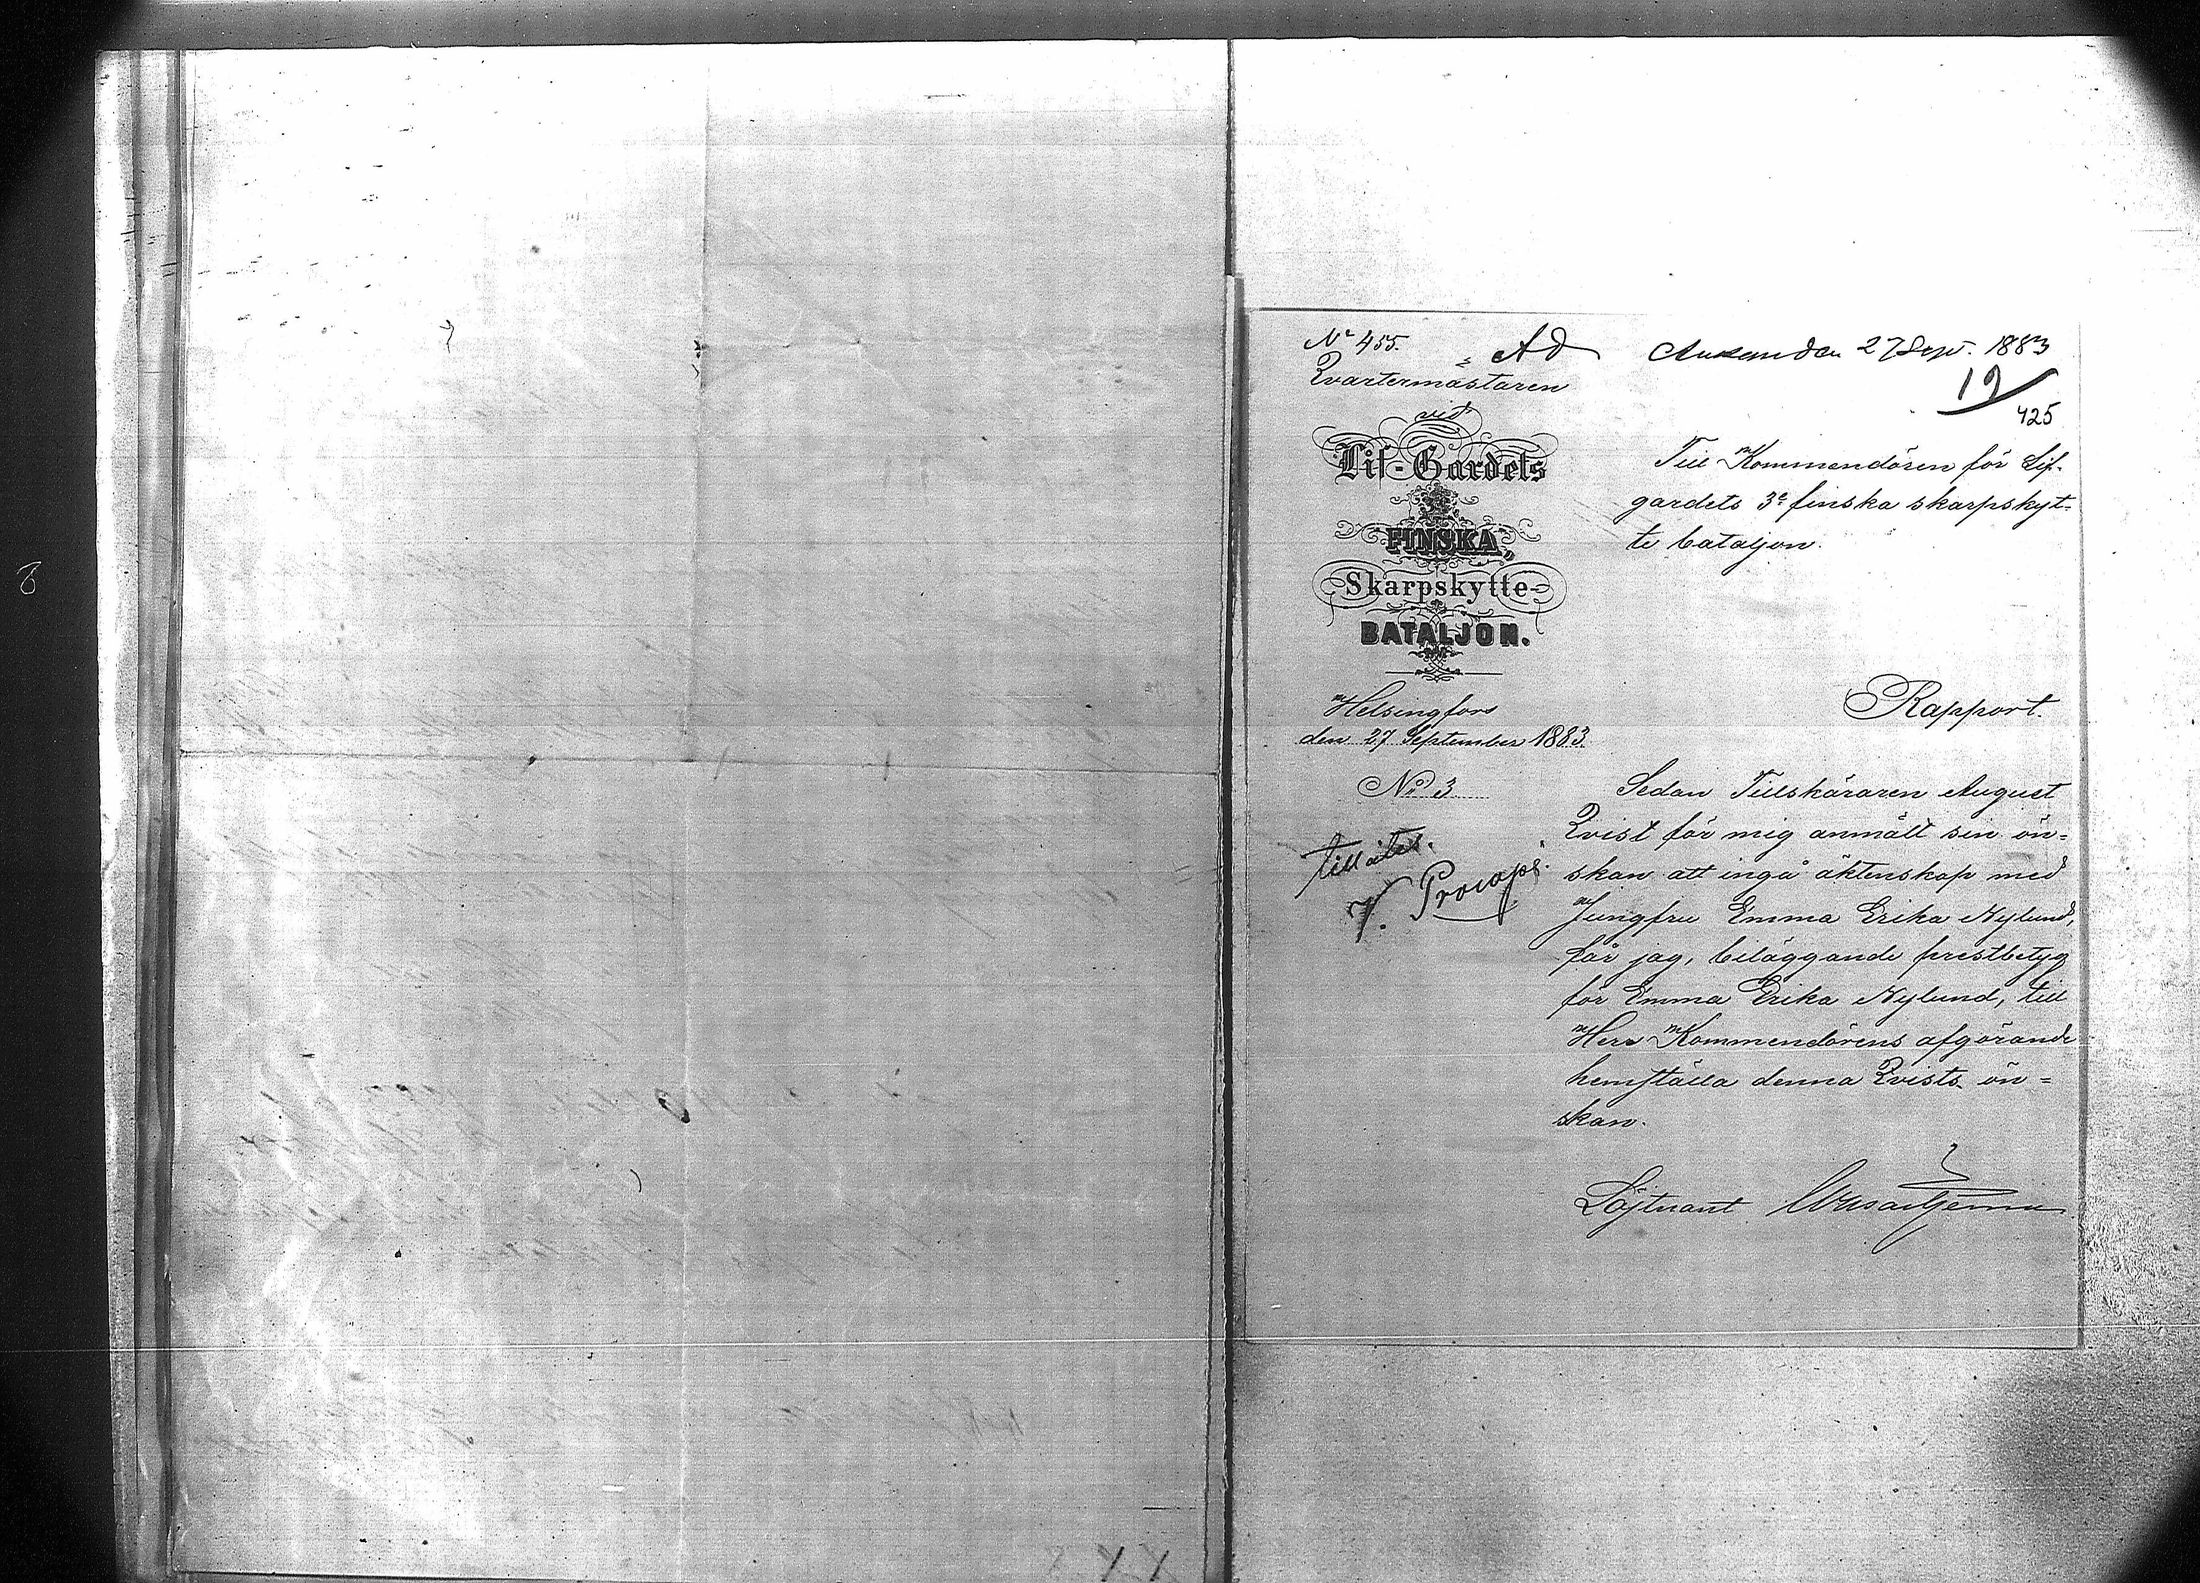 No 455.
Ad
Ank. den 27 Sept. 1883
19
425
Qvartermästaren
vid
Lif-Gardets
3e
FINSKA
Skarpskytte-
BATALJON.
Helsingfors
den 27 September 1883.
No 3
tillåtes.
V. Procopé.
Till Kommendören för Lif-
gardets 3e finska skarpskyt-
te bataljon.
Rapport.
Sedan Tillskäraren August
Qvist för mig anmält sin ön-
skan att ingå äktenskap med
Jungfru Emma Erika Nylund,
får jag, biläggande prestbetyg
för Emma Erika Nylund, till
Herr Kommendörens afgörande
hemställa denna Qvists ön-
skan.
Löjtnant